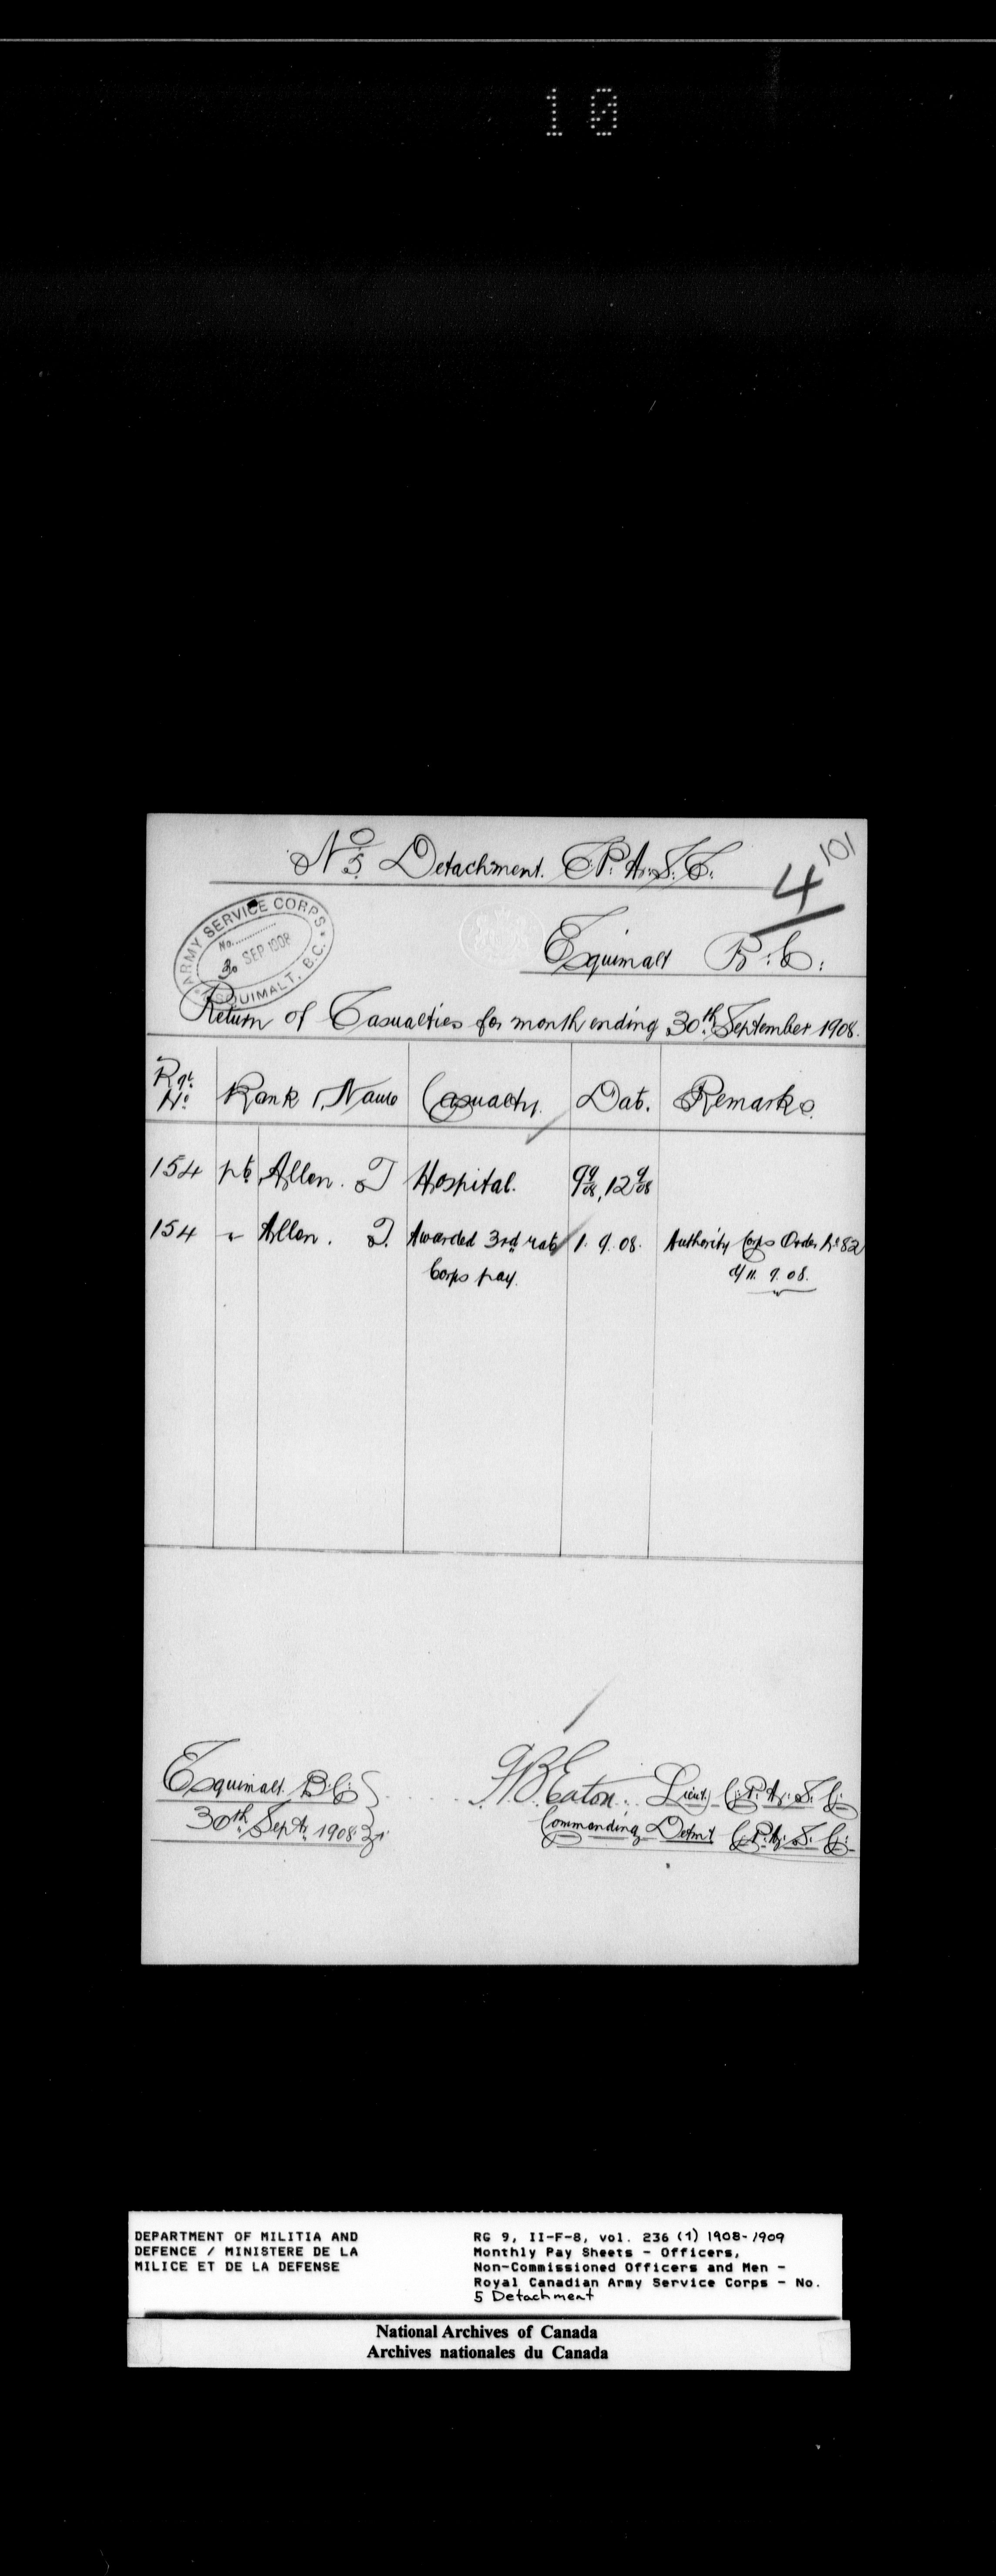 10
101
No 5 Detachment. C.P.A.S.C.
4
ARMY SERVICE CORPS
No.
30 SEP 1908
ESQUIMALT, B.C.
Esquimalt B.C.
Return of Casualties for month ending 30th September 1908.
Rgt. No Rank, Name Casualty. Date. Remarks.
154 Pte Allen. T Hospital. 9/9/08, 12/9/08
154 " Allen. T. Awarded 3rd rate Corps pay. 1.9.08. Authority Corps Order No 82
d/ 11.9.08.
Esquimalt. B.C.
30th Sept. 1908
Eaton. Lieut. C.P.A.S.C.
Commanding Detmt C.P.A.S.C.
DEPARTMENT OF MILITIA AND
DEFENCE / MINISTERE DE LA
MILICE ET DE LA DEFENSE
RG 9, II-F-8, vol. 236 (1) 1908-1909
Monthly Pay Sheets - Officers,
Non-Commissioned Officers and Men -
Royal Canadian Army Service Corps - No.
5 Detachment
National Archives of Canada
Archives nationales du Canada